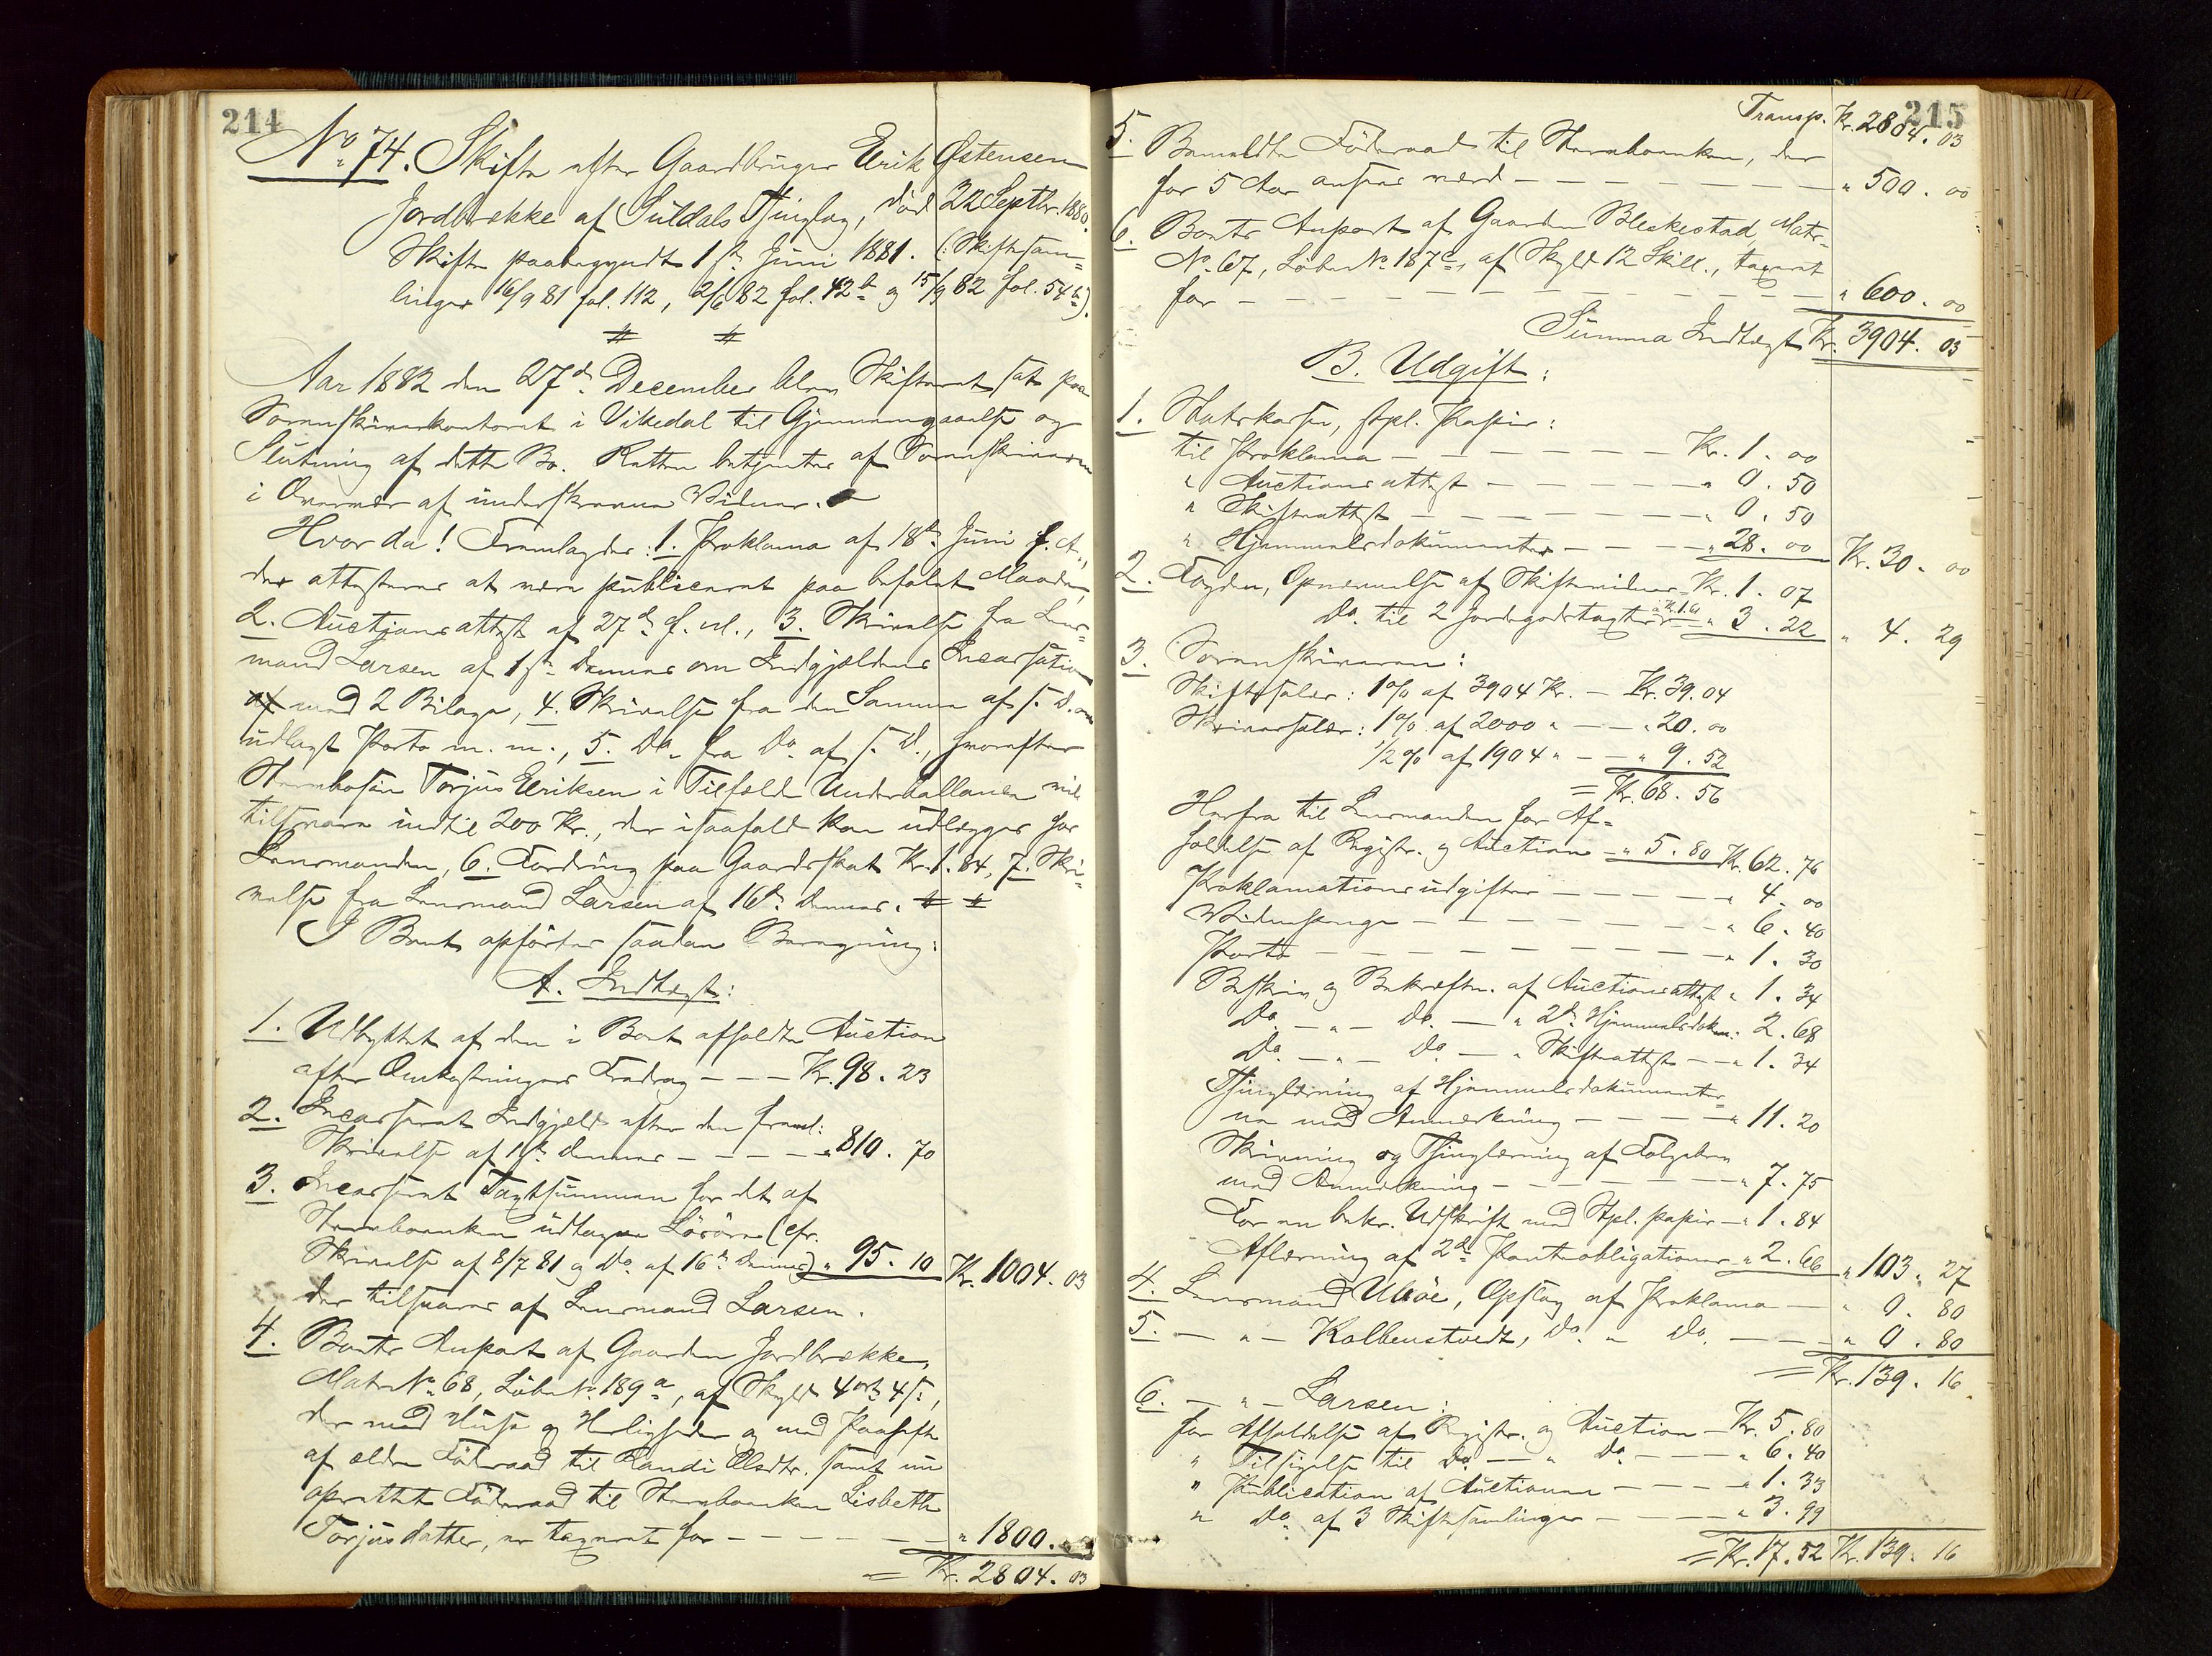 214
No 74. Skifte efter Gaardbruger Eirik Østensen
Jordbrække af Suldals Thinglag, död 22 Septbr. 1880.
Skifte paabegyndt 1ste Juni 1881. (: Skiftesam=
linger 16/9 81 fol. 112, 2/6 82 fol. 42b og 15/9 82 fol. 54b).
Aar 1882 den 27de December blev Skifteret sat paa
Sorenskriverkontoret i Vikedal til Gjennemgaaelse og
Slutning af dette Bo. Retten betjentes af Sorenskriveren
i Overvær af underskrevne Vidner.
Hvor da! Fremlagdes: 1. Proklama af 18de Juni f. A.,
der attesteres at være publiceret paa befalet Maade,
2. Auctionsattest af 27de f. M., 3. Skrivelse fra Lens=
mand Larsen af 1ste dennes om Indgjældens Incassation
med 2 Bilage, 4. Skrivelse fra den Samme af s. D. om
udlagt Porto m. m., 5. Do fra Do af s. D., hvorefter
Stervbosön Torjus Eiriksen i Tilfælde Underballance vil
tilsvare indtil 200 Kr., der isaafald kan udlægges hos
Lensmanden, 6. Fordring paa Gaardsskat Kr. 1.84, 7. Skri=
velse fra Lensmand Larsen af 16de dennes.
I Boet opförtes saadan Beregning:
A. Indtægt:
1. Udbyttet af den i Boet afholdte Auction
efter Omkostningers Fradrag - - - Kr. 98. 23
2. Incasseret Indgjæld efter den freml:
Skrivelse af 1ste dennes - - - - - " 810. 70
3. Incasseret Taxtsummen for det af
Stervboenken udtagne Lösöre (cfr.
Skrivelse af 8/7 81 og Do af 16de dennes) " 95. 10 Kr. 1004. 03
der tilsvares af Lensmand Larsen.
4. Boets Anpart af Gaarden Jordbrække,
Matr. No 68, Löbe No 189a, af Skyld 4 ort 4 s.,
der med Huse og Herligheder og med Paaheft
af ældre Föderaad til Randi Olsdtr. samt nu
oprettet Föderaad til Stervboenken Lisbeth
Torjusdatter, er taxeret for - - - - - " 1800.
= Kr. 2804. 03
215
Transp. Kr. 2804. 03
5. Bemeldte Föderaad til Stervboenken, der
for 5 Aar ansees værd - - - - - " 500. 00
6. Boets Anpart af Gaarden Bleskestad, Matr=
No 67, Löbe No 187c, af Skyld 12 Skill., taxeret
for - - - - - " 600. 00
Summa Indtægt Kr. 3904. 03
B. Udgift:
1. Statskassen, stpl. Papir:
til Proklama - - - - - Kr. 1. 00
" Auctionsattest - - - - - " 0. 50
" Skifteattest - - - - - " 0. 50
" Hjemmelsdokumenter - - - - " 28. 00 Kr. 30. 00
2. Fogden, Opnævnelse af Skiftevidner - Kr. 1. 07
Do til 2 Jordegodstaxter à Kr. 1.61 " 3. 22 " 4. 29
3. Sorenskriveren:
Skiftesalær: 1% af 3904 Kr. - Kr. 39. 04
Skriversalær: 1% af 2000 " - - " 20. 00
1/2 % af 1904 " - - " 9. 52
= Kr. 68. 56
Herfra til Lensmanden for Af=
holdelse af Registr. og Auction - " 5. 80 Kr. 62. 76
Proklamationsudgifter - - - - " 4. 00
Vidnepenge - - - - - " 6. 40
Porto - - - - - " 1. 30
Beskriv. og Bekræftn. af Auctionsattest " 1. 34
Do - " - Do - " 2de Hjemmelsdokum: 2. 68
Do - " - Do - " Skifteattest - - " 1. 34
Thinglæsning af Hjemmelsdokumenter=
ne med Anmerkning - - - - " 11. 20
Skrivning og Thinglæsning af Fölgebrev
med Anmerkning - - - - - " 7. 75
For en bekr. Udskrift med Stpl. papir - " 1. 84
Aflæsning af 2de Panteobligationer " 2. 66 " 103. 27
4. Lensmand Ulvöe, Opslag af Proklama - " 0. 80
5. - " - Kolbenstvedt, Do " Do - - " 0. 80
= Kr. 139. 16
6. - " - Larsen:
for Afholdelse af Registr. og Auction - Kr. 5. 80
" Tilsigelse til Do - " Do - - - " 6. 40
" Publication af Auctionen - - - - " 1. 33
" Do af 3 Skiftesamlinger - - - - " 3. 99
= Kr. 17. 52 Kr. 139. 16